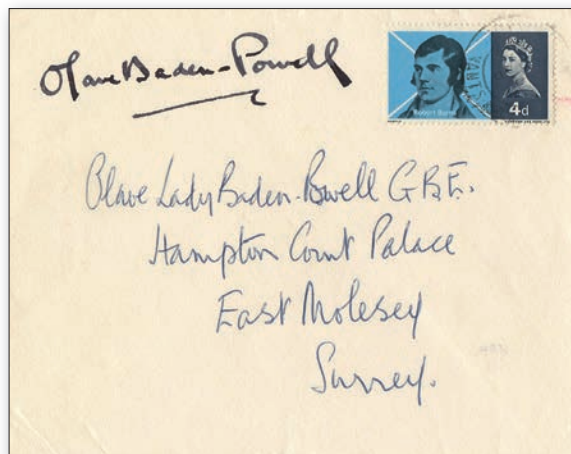 Olave Baden-Powell
Robert Burns
4d
Olave Lady Baden-Powell G.B.E.
Hampton Court Palace
East Molesey
Surrey.